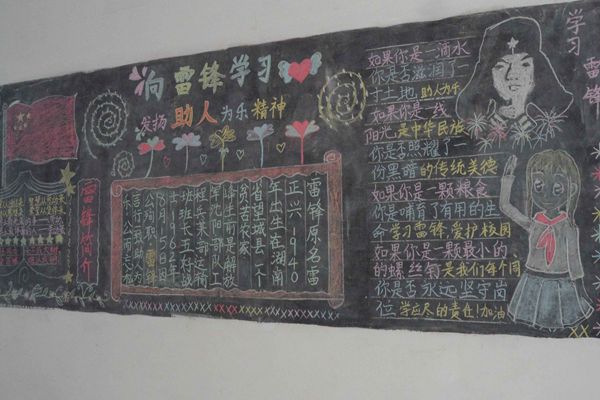 向雷锋学习
发扬助人为乐精神
雷锋简介
雷锋原名雷
正兴1940
年出生在湖南
省望城县一个
贫苦农家
锋生前是解放
军沈阳部队工
程兵某部运输
班班长五好战
士1962年
8月15日因
公殉职雷锋
如果你是一滴水
你是否滋润了一
寸土地,助人为乐
如果你是一线
阳光是中华民族
你是否照耀了一
份黑暗的传统美德
如果你是一颗粮食
你是哺育了有用的生
命学习雷锋爱护校园
如果你是一颗最小的
的螺丝钉是我们每个同
你是否永远坚守岗
位学应尽的责任!加油
学习雷锋